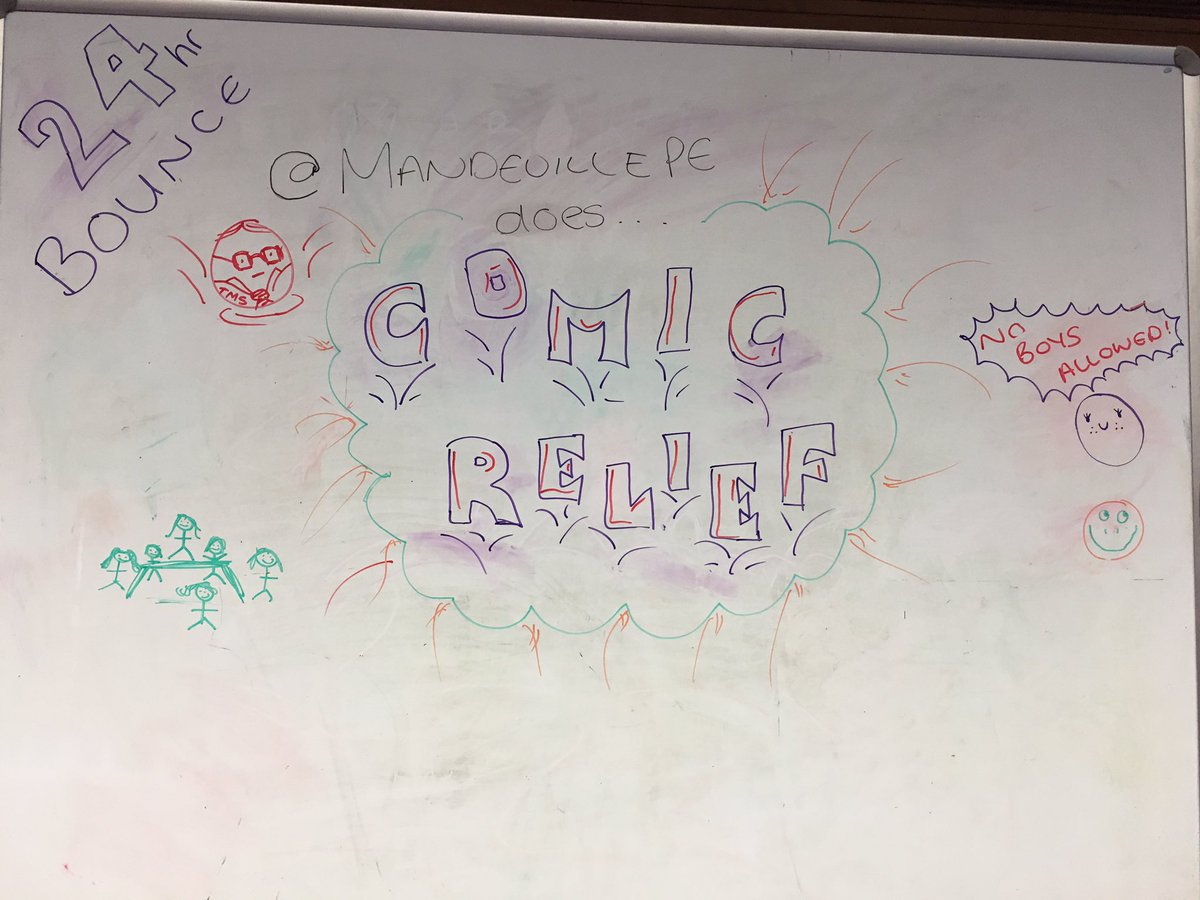 24hr
BOUNCE
@MANDEVILLEPE
does....
TMS
COMIC
RELIEF
NO
BOYS
ALLOWED!